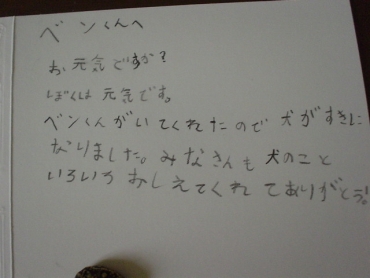 ベンくんへ
お元気ですか?
ぼくは元気です。
ベンくんがいてくれたので犬がすきに
なりました。みなさんも犬のこと
いろいろおしえてくれてありがとう!